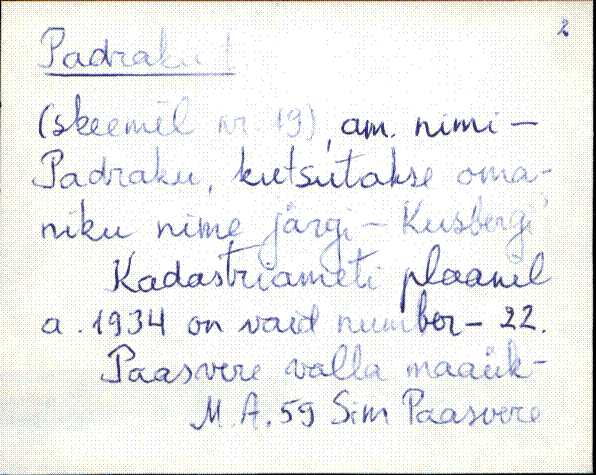 2
Padraku t
(skeemil nr. 19), am. nimi -
Padraku, kutsutakse oma-
niku nime järgi - Kusbergi
Kadastriameti plaanil
a. 1934 on vaid number - 22.
Paasvere valla maaük-
M. A. 59 Sim Paasvere